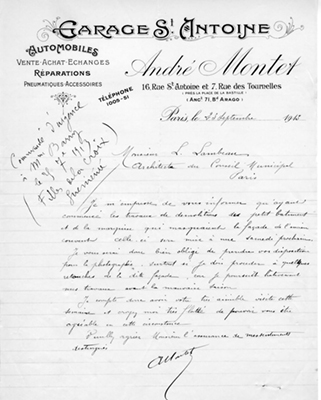 GARAGE St. ANTOINE
AUTOMOBILES
VENTE-ACHAT-ECHANGES
RÉPARATIONS
PNEUMATIQUES-ACCESSOIRES
TÉLÉPHONE
1005-51
André Montet
16, Rue St Antoine et 7, Rue des Tournelles
(PRÈS LA PLACE DE LA BASTILLE)
(ANCt 71, Bd ARAGO)
Paris, le Septembre 191
Communiqué d'urgence
à Mr
le 7bre
(Filles de la Croix
Guéménée)
Monsieur L. Lambeau
du Conseil Municipal
Paris
Je m'empresse de vous informer qu'ayant
commencé les travaux de démolition du petit batiment
et de la marquise qui masquaient la façade de l'ancien
couvent celle ci sera mise à nue samedi prochain
Je vous serai donc bien obligé de prendre vos dispositions
pour la photographie, surtout si je dois procéder à quelques
retouches de la dite façade, me poussant
nos travaux avant la mauvaise saison
Je compte donc avoir votre très aimable visite cette
semaine et croyez moi très flatté de pouvoir vous être
agréable en cette circonstance.
Veuillez agréer Monsieur l'assurance de mes sentiments
distingués